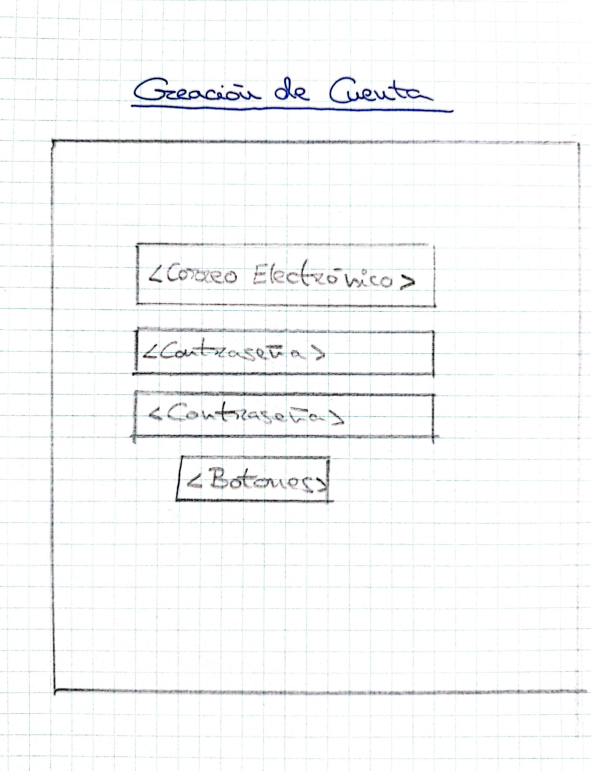 Creación de Cuenta
<Correo Electrónico>
<Contraseña>
<Contraseña>
<Botones>